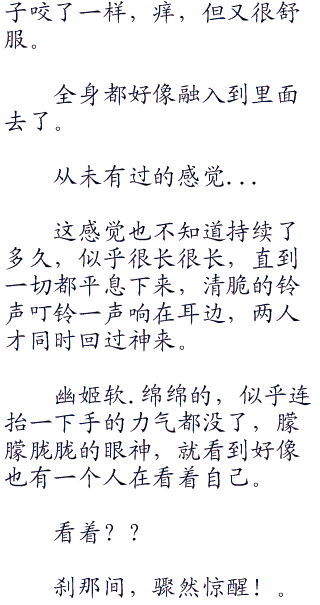 子咬了一样，痒，但又很舒
服。
全身都好像融入到里面
去了。
从未有过的感觉...
这感觉也不知道持续了
多久，似乎很长很长，直到
一切都平息下来，清脆的铃
声叮铃一声响在耳边，两人
才同时回过神来。
幽姬软.绵绵的，似乎连
抬一下手的力气都没了，朦
朦胧胧的眼神，就看到好像
也有一个人在看着自己。
看着？？
刹那间，骤然惊醒！。